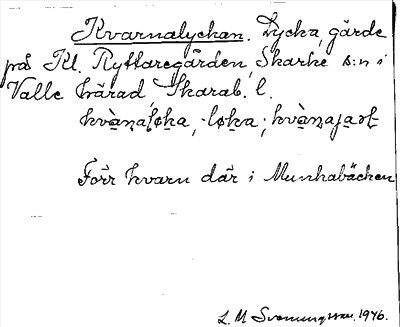 Kvarnalyckan. Lycka, gärde
på Kl. Ryttaregården, Skarke s:n i
Valle härad, Skarab. l.
kvàn̥aḷøka, -løka; kvàn̥aja̱ḷ
Förr kvarn där i Munkabäcken
L. M. Svenungsson. 1946.